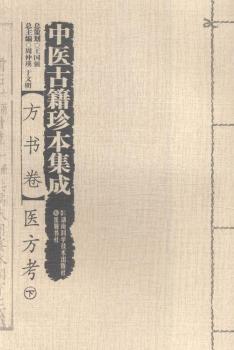 中医古籍珍本集成
总策划◎王国强
总主编◎周仲瑛 于文明
【方书卷】医方考
下
湖南科学技术出版社
岳麓书社